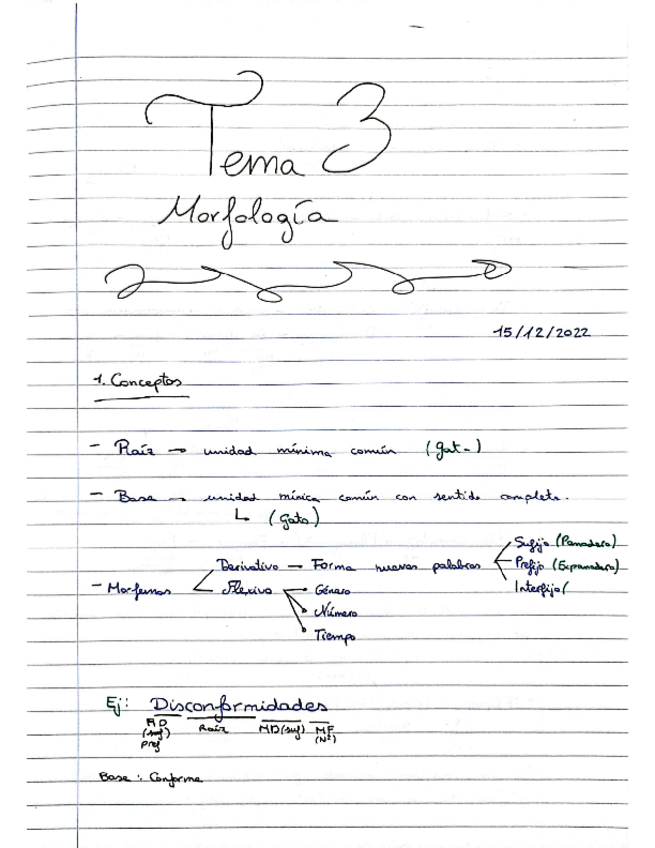 Tema 3
Morfología
15/12/2022
1. Conceptos
- Raíz → unidad mínima común (gat-)
- Base → unidad mínica común con sentido completo.
↳ (gato)
- Morfemas
Derivativo - Forma nuevas palabras
Sufijo (Panadero)
Prefijo (Expanadero)
Interfijo (
Flexivo
Género
Número
Tiempo
Ej: Disconformidades
MD (suf) pref
Raíz
MD (suf)
MF (Nº)
Base: Conforme